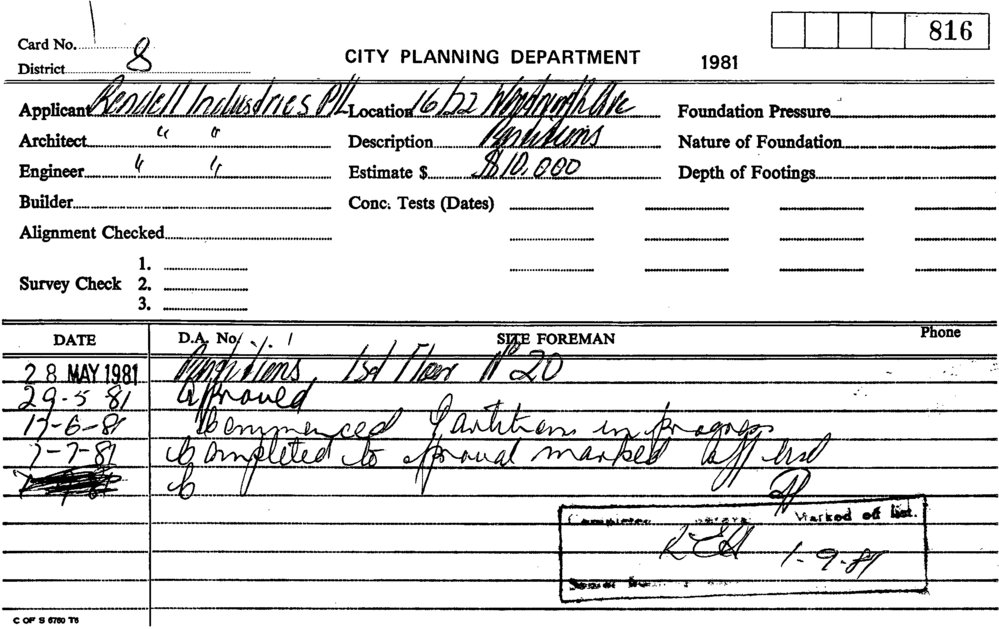 816
Card No.
CITY PLANNING DEPARTMENT 1981
District 8
Applicant Rendell Industries P/L Location 16/22 Wentworth Ave Foundation Pressure
Architect " " Description Partitions Nature of Foundation
Engineer " " Estimate $ $10,000 Depth of Footings
Builder Conc. Tests (Dates)
Alignment Checked
1.
Survey Check 2.
3.
DATE D.A. No. SITE FOREMAN Phone
28 MAY 1981 Partitions 1st Floor No 20
29-5 81 Approved
17-6-81 Commenced Partitions in progress
7-7-81 Completed to approval marked off
Marked off list.
1-9-81
C OF S 6760 T6